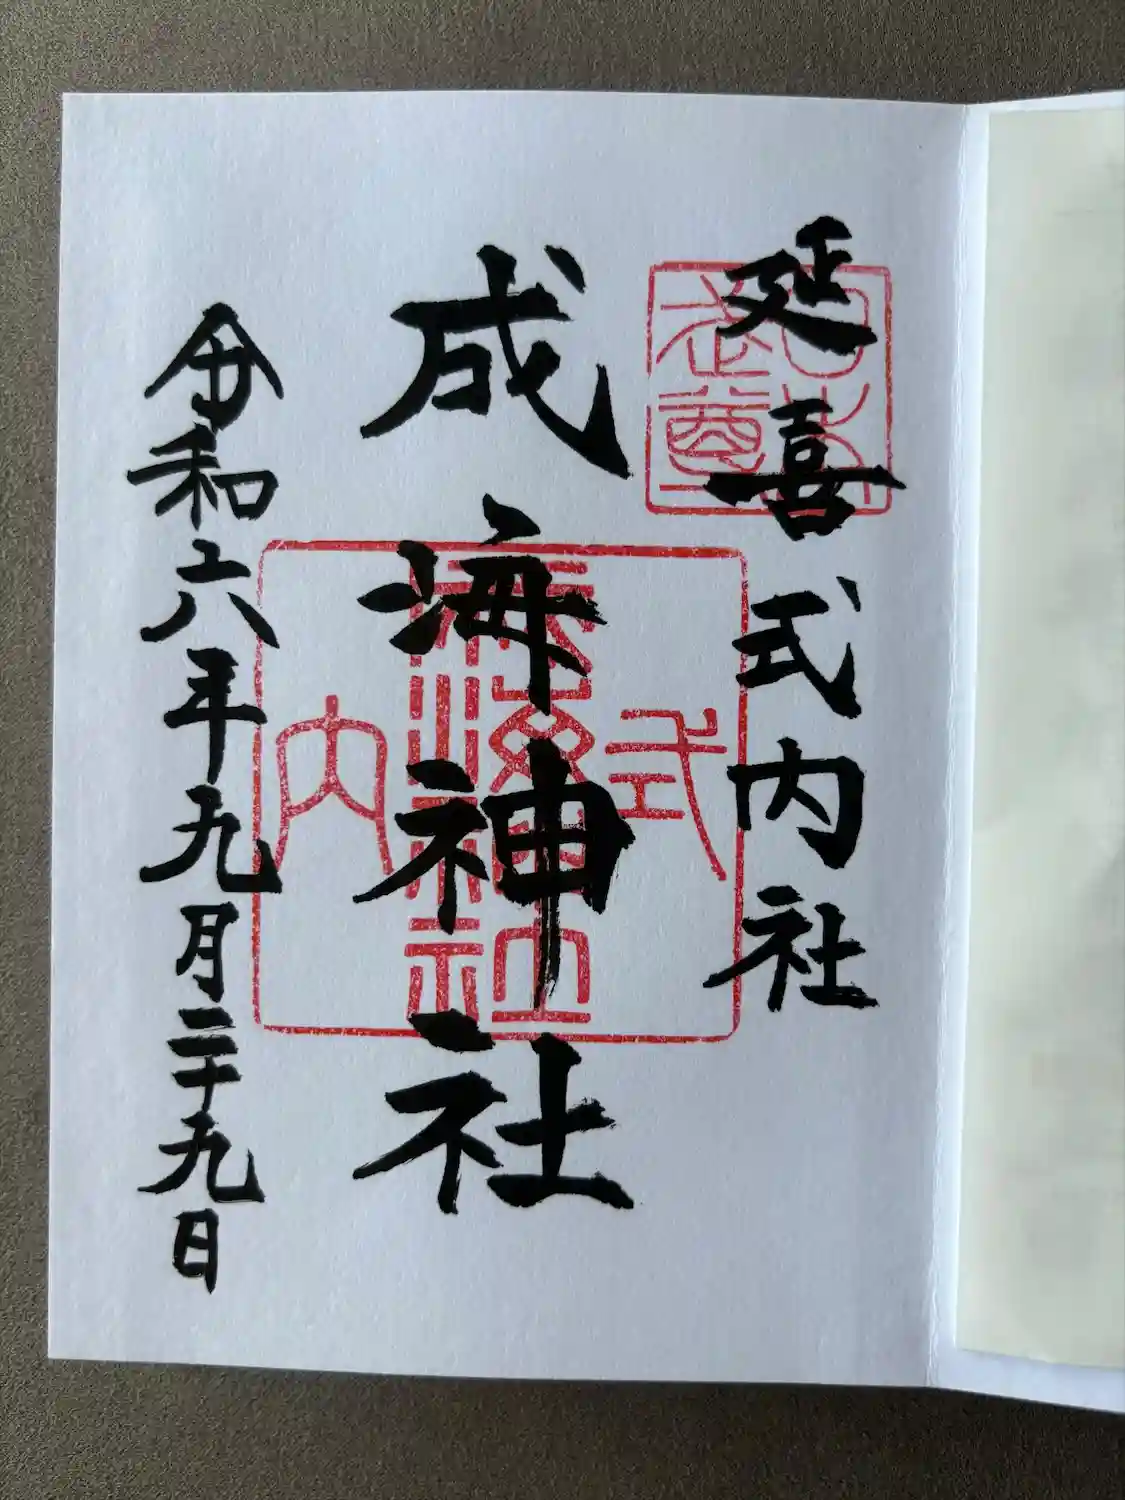 延喜式内社
成海神社
令和六年九月二十九日
式
成海神社
内